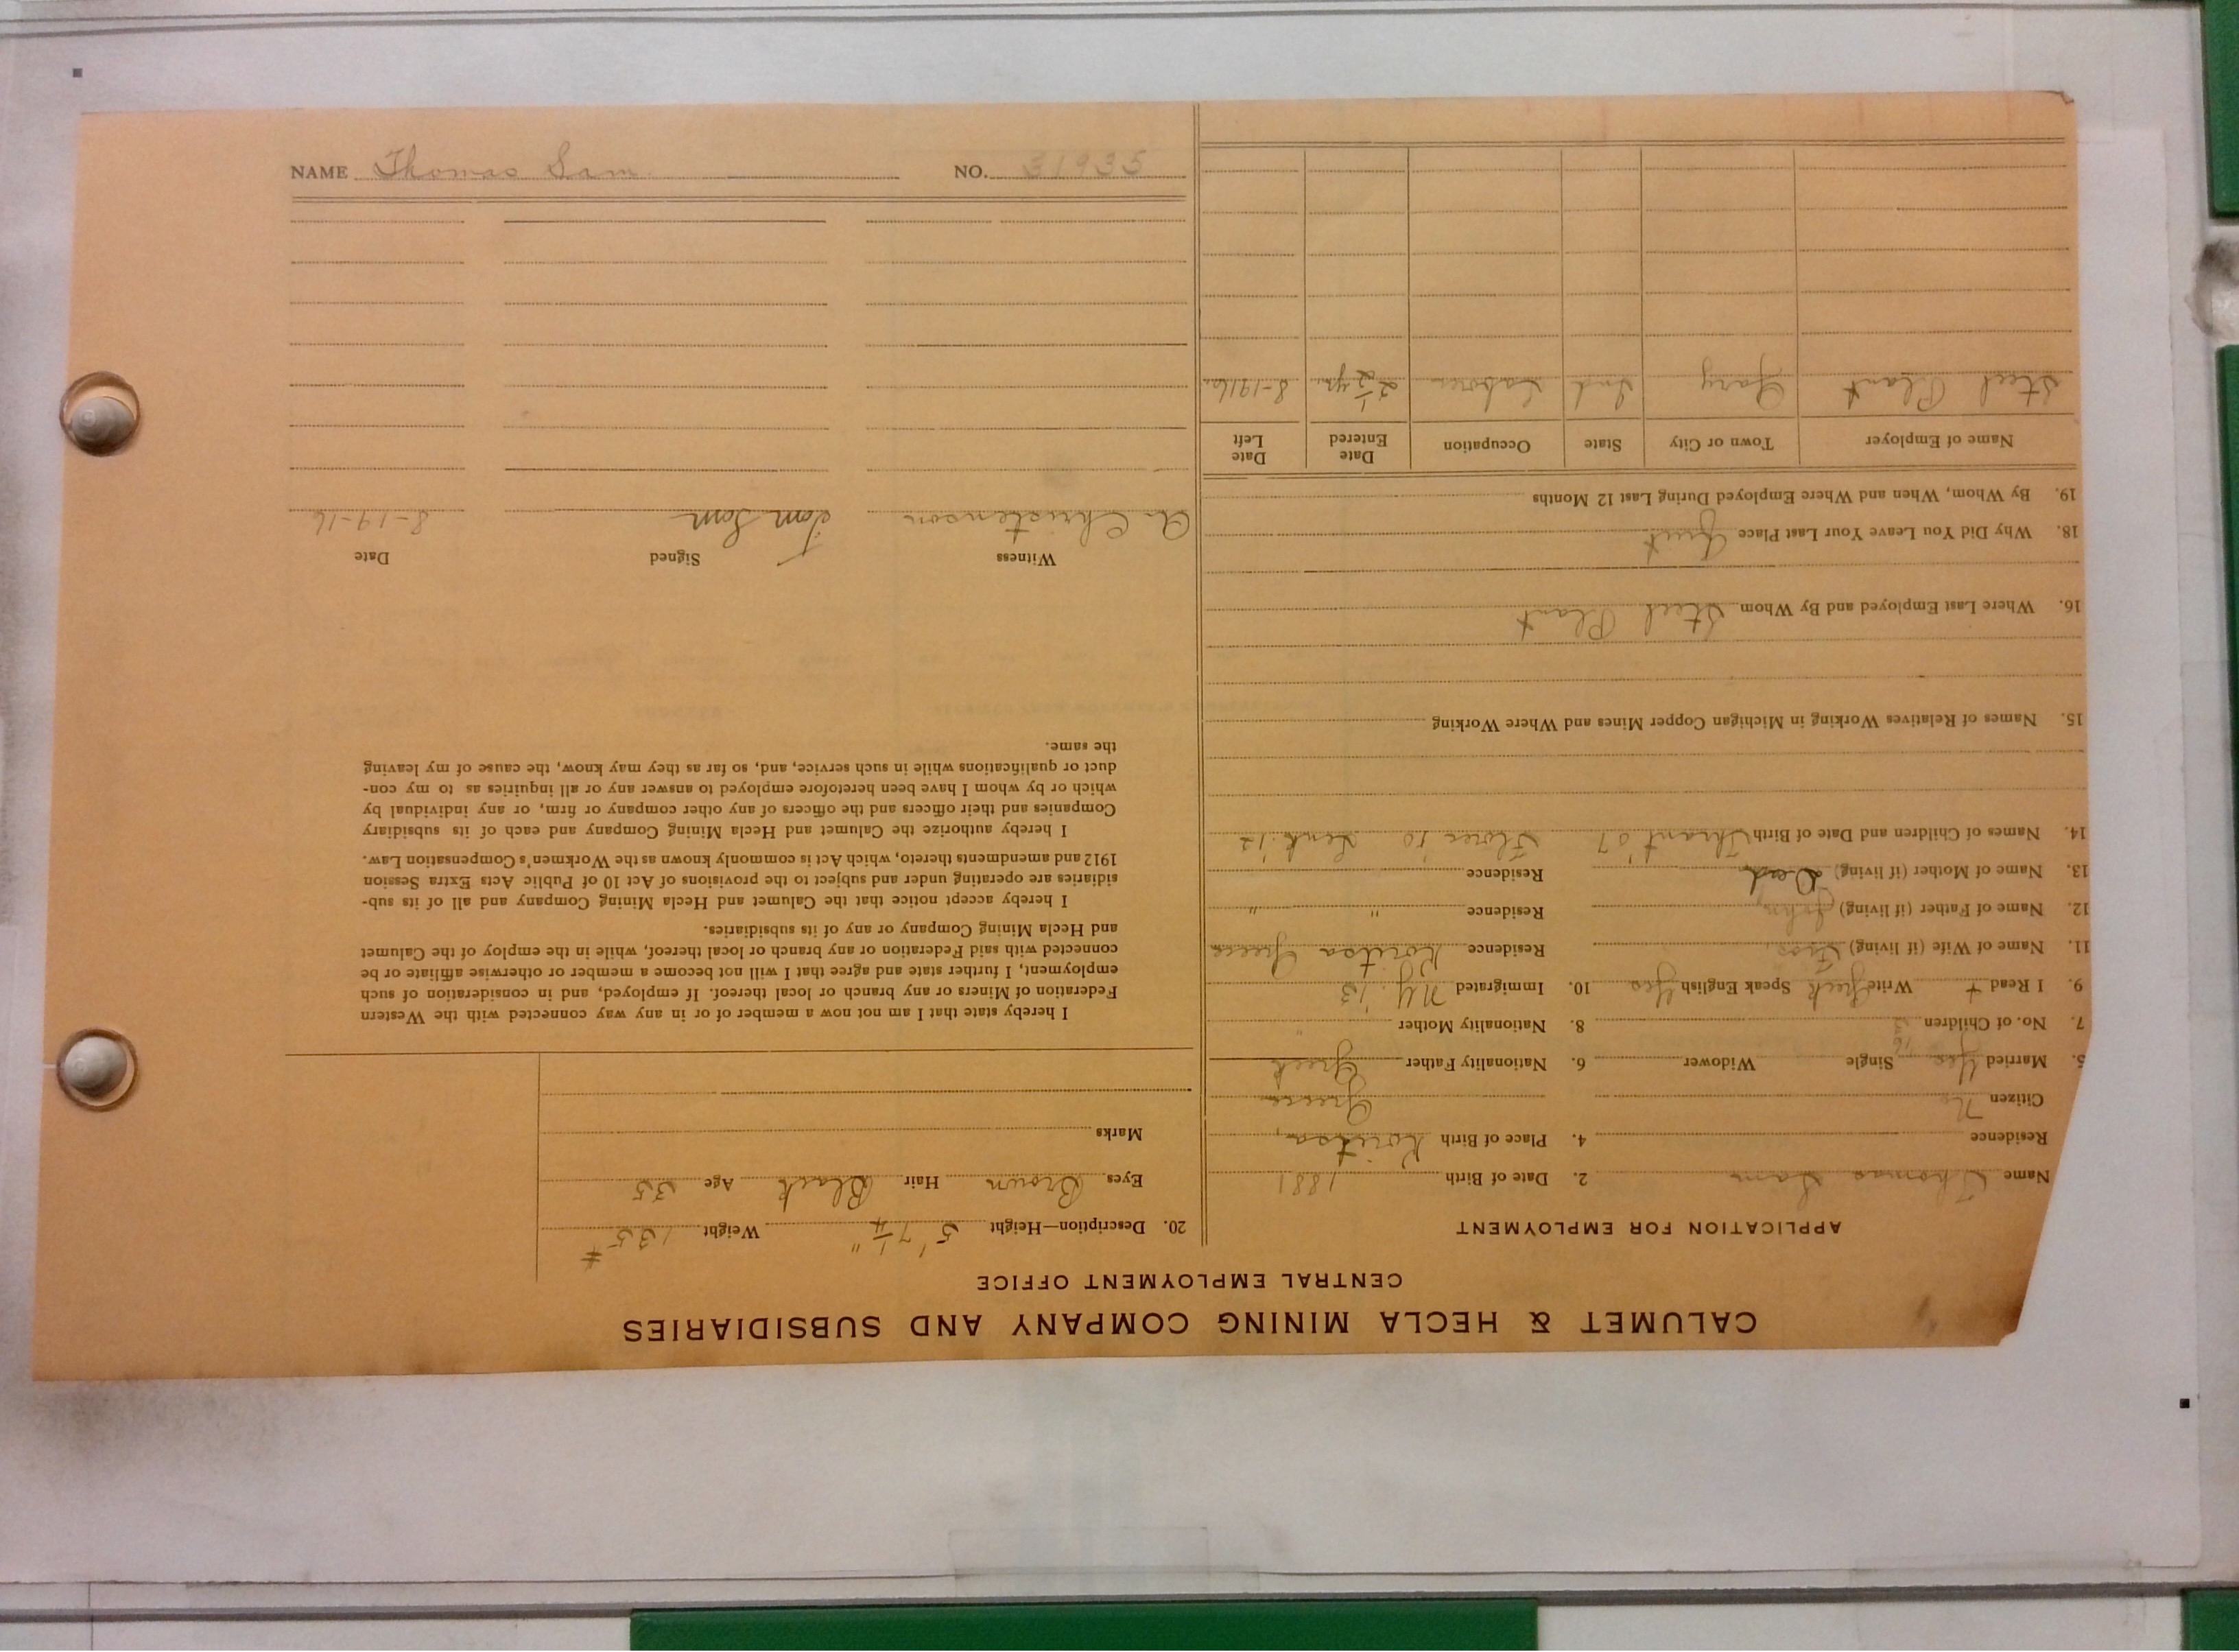 CALUMET & HECLA MINING COMPANY AND SUBSIDIARIES
CENTRAL EMPLOYMENT OFFICE
APPLICATION FOR EMPLOYMENT
Name Thomas Sam 2. Date of Birth 1881
Residence 4. Place of Birth Koritsa,
Citizen No Greece
5. Married Yes Single Widower 6. Nationality Father Greek
7. No. of Children 3 8. Nationality Mother "
9. I Read + Write Greek Speak English Yes 10. Immigrated N.Y. '13
11. Name of Wife (if living) Residence Koritsa Greece
12. Name of Father (if living) John Residence " "
13. Name of Mother (if living) Dead Residence
14. Names of Children and Date of Birth '07 '10 '12
15. Names of Relatives Working in Michigan Copper Mines and Where Working
16. Where Last Employed and By Whom Steel Plant
18. Why Did You Leave Your Last Place Quit
19. By Whom, When and Where Employed During Last 12 Months
Name of Employer Town or City State Occupation Date Entered Date Left
Steel Plant Gary Ind Laborer 2 1/2 yr. 8-1916
20. Description—Height 5' 7 1/4" Weight 135 #
Eyes Brown Hair Black Age 35
Marks
I hereby state that I am not now a member of or in any way connected with the Western
Federation of Miners or any branch or local thereof. If employed, and in consideration of such
employment, I further state and agree that I will not become a member or otherwise affiliate or be
connected with said Federation or any branch or local thereof, while in the employ of the Calumet
and Hecla Mining Company or any of its subsidiaries.
I hereby accept notice that the Calumet and Hecla Mining Company and all of its sub-
sidiaries are operating under and subject to the provisions of Act 10 of Public Acts Extra Session
1912 and amendments thereto, which Act is commonly known as the Workmen's Compensation Law.
I hereby authorize the Calumet and Hecla Mining Company and each of its subsidiary
Companies and their officers and the officers of any other company or firm, or any individual by
which or by whom I have been heretofore employed to answer any or all inquiries as to my con-
duct or qualifications while in such service, and, so far as they may know, the cause of my leaving
the same.
Witness Signed Date
A Christenson Tom Sam 8-19-16
NAME Thomas Sam NO. 31935